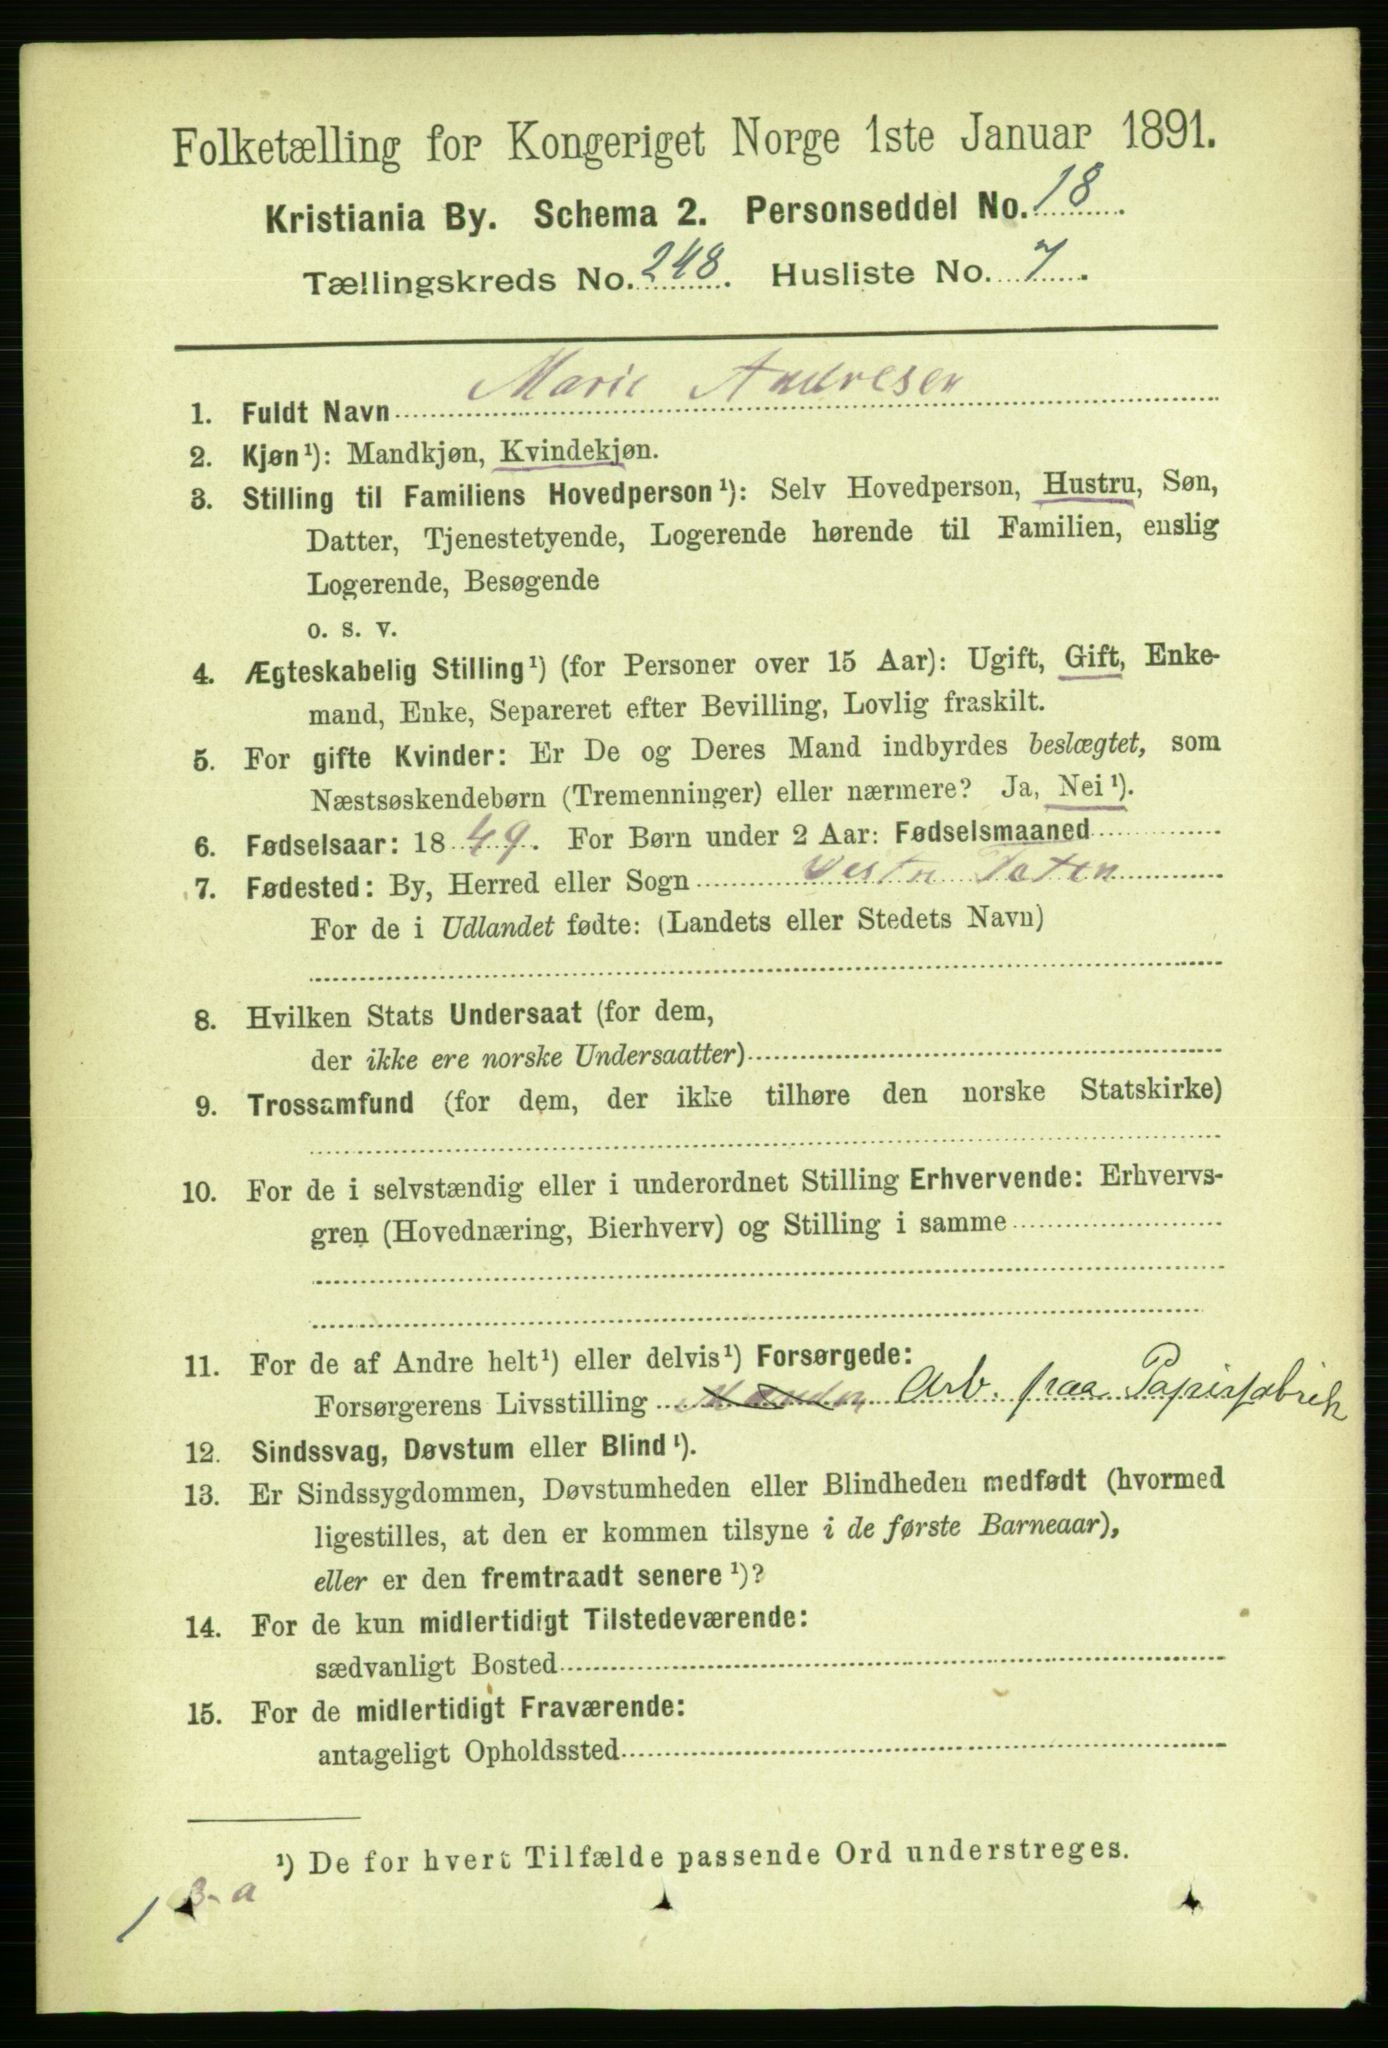 Folketælling for Kongeriget Norge 1ste Januar 1891.
Kristiania By. Schema 2. Personseddel No. 18.
Tællingskreds No. 248. Husliste No. 7.
1. Fuldt Navn Marie Andresen
2. Kjøn¹): Mandkjøn, Kvindekjøn.
3. Stilling til Familiens Hovedperson¹): Selv Hovedperson, Hustru, Søn,
Datter, Tjenestetyende, Logerende hørende til Familien, enslig
Logerende, Besøgende
o. s. v.
4. Ægteskabelig Stilling¹) (for Personer over 15 Aar): Ugift, Gift, Enke-
mand, Enke, Separeret efter Bevilling, Lovlig fraskilt.
5. For gifte Kvinder: Er De og Deres Mand indbyrdes beslægtet, som
Næstsøskendebørn (Tremenninger) eller nærmere? Ja, Nei¹).
6. Fødselsaar: 1849. For Børn under 2 Aar: Fødselsmaaned
7. Fødested: By, Herred eller Sogn Vestre Toten
For de i Udlandet fødte: (Landets eller Stedets Navn)
8. Hvilken Stats Undersaat (for dem,
der ikke ere norske Undersaatter)
9. Trossamfund (for dem, der ikke tilhøre den norske Statskirke)
10. For de i selvstændig eller i underordnet Stilling Erhvervende: Erhvervs-
gren (Hovednæring, Bierhverv) og Stilling i samme
11. For de af Andre helt¹) eller delvis¹) Forsørgede:
Forsørgerens Livsstilling Manden Arb. paa Papirfabrik
12. Sindssvag, Døvstum eller Blind¹).
13. Er Sindssygdommen, Døvstumheden eller Blindheden medfødt (hvormed
ligestilles, at den er kommen tilsyne i de første Barneaar),
eller er den fremtraadt senere¹)?
14. For de kun midlertidigt Tilstedeværende:
sædvanligt Bosted
15. For de midlertidigt Fraværende:
antageligt Opholdssted
¹) De for hvert Tilfælde passende Ord understreges.
1 B-a